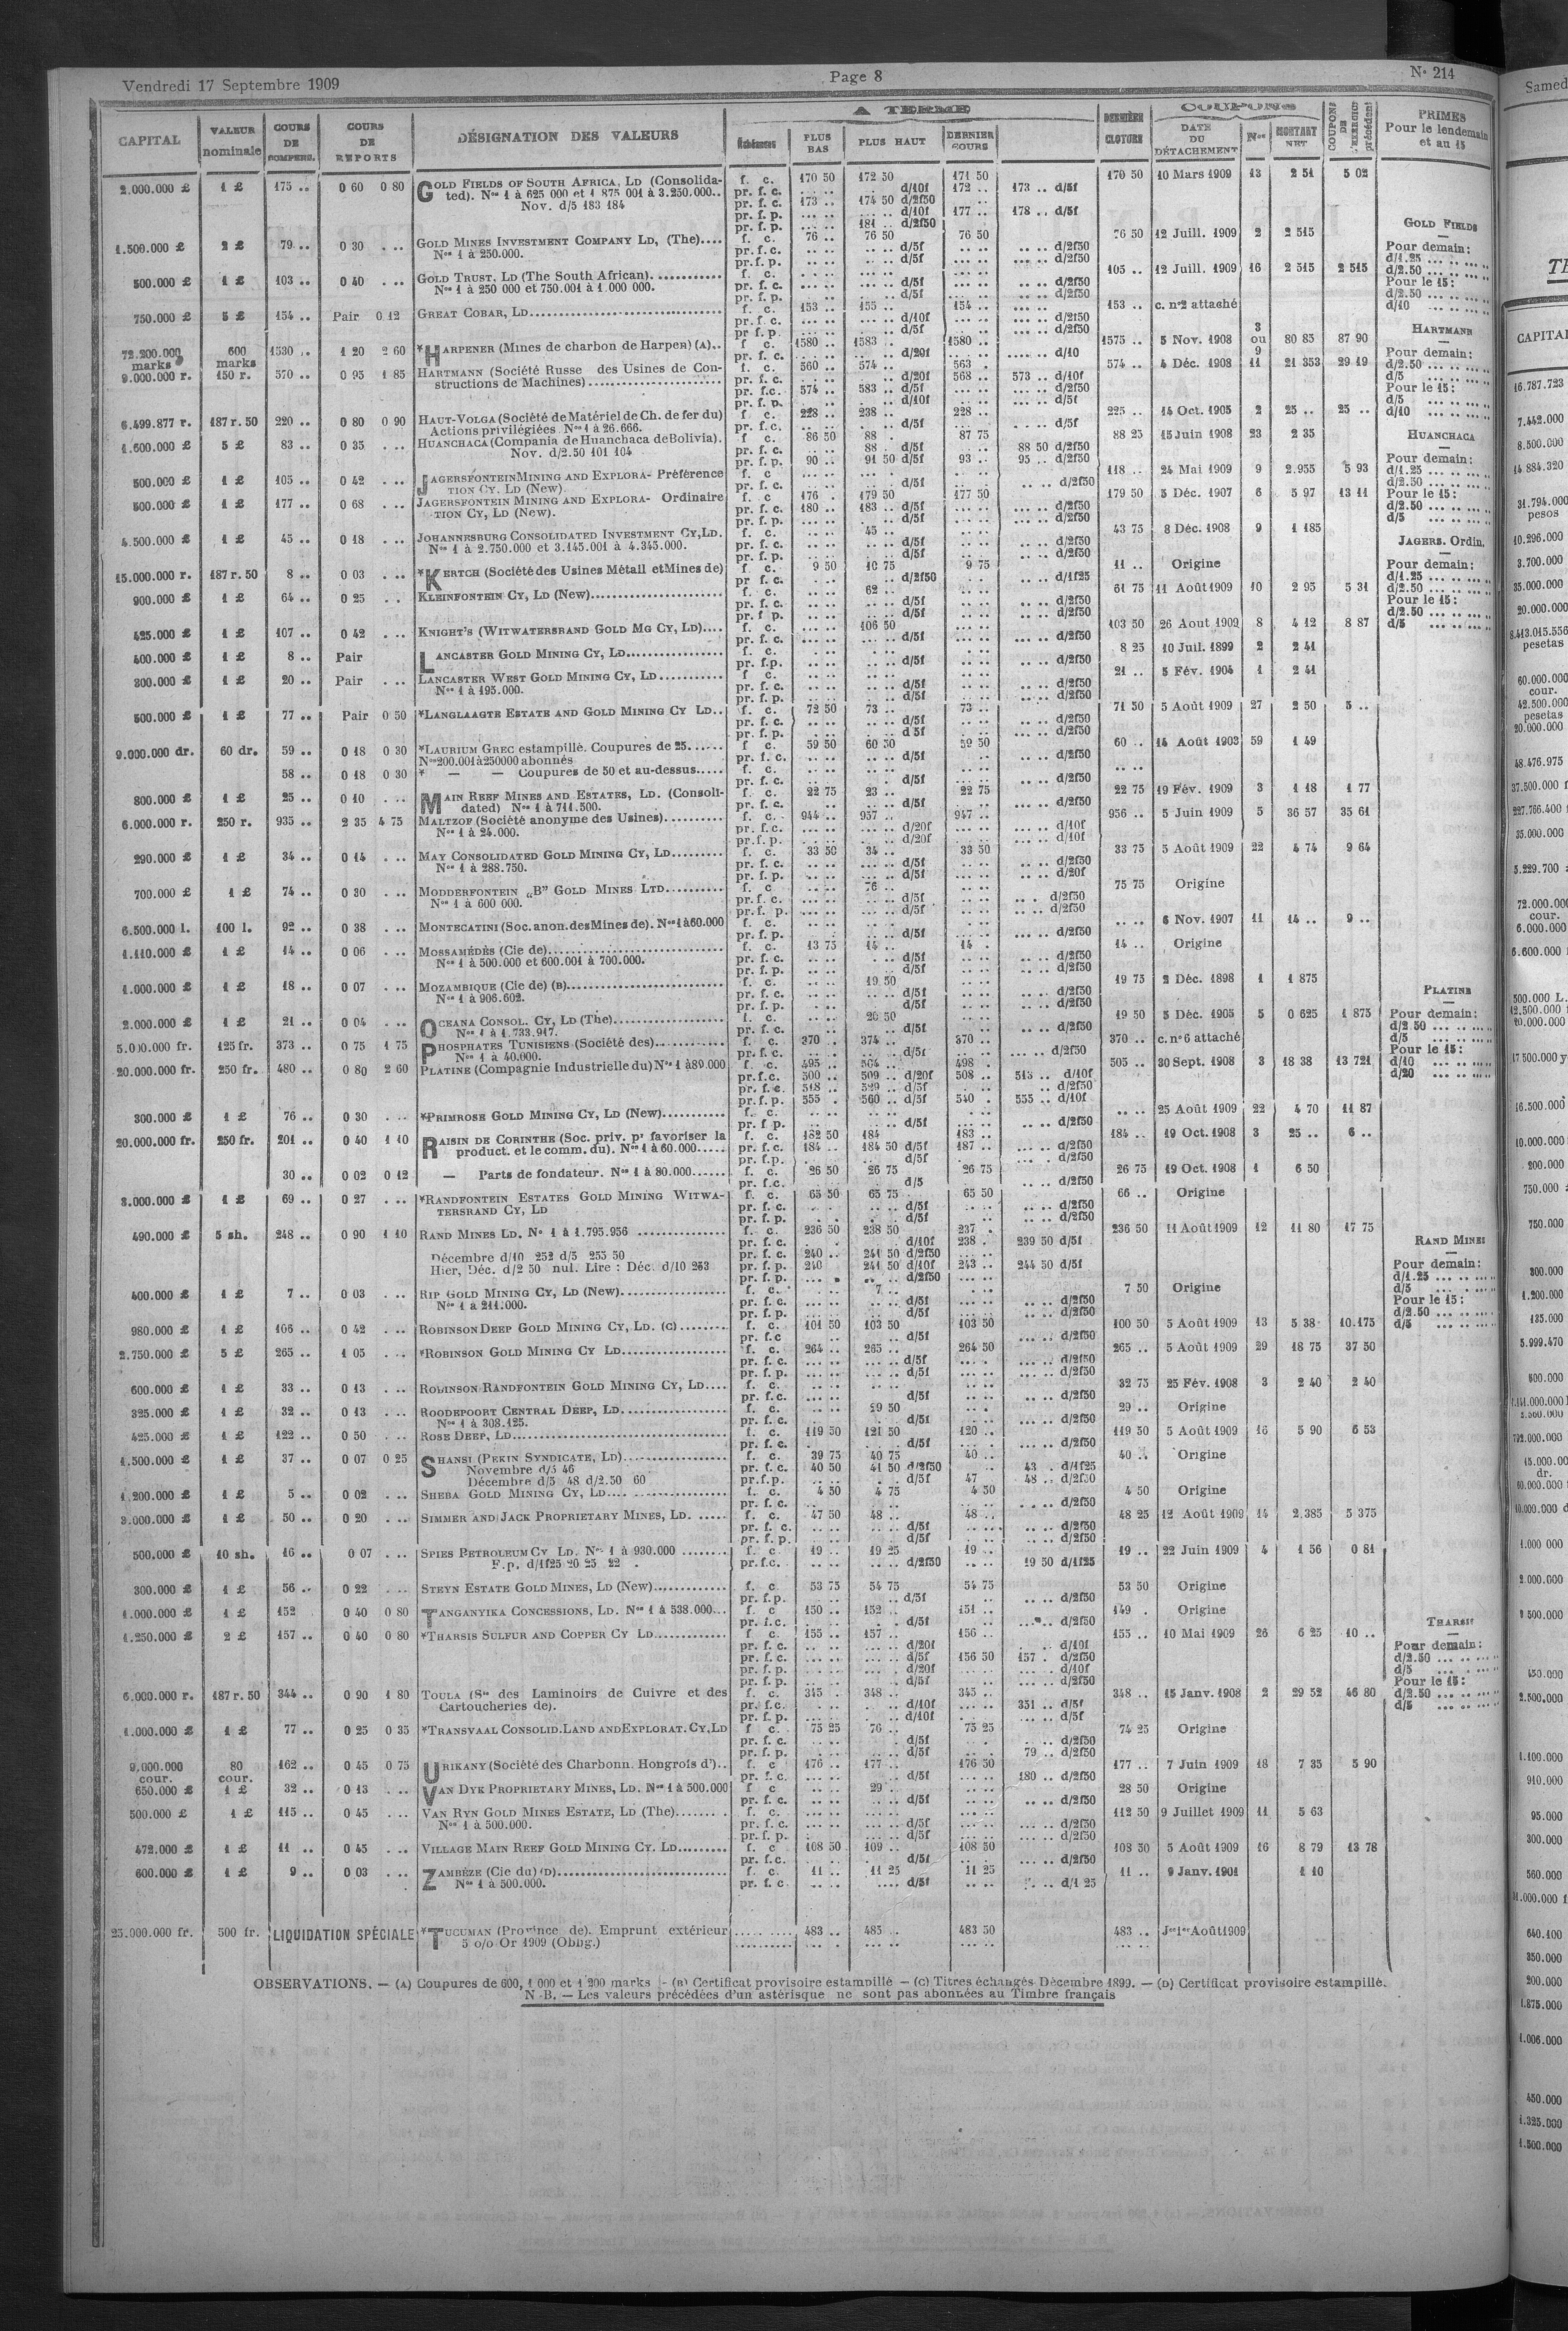 Vendredi 17 Septembre 1909
Page 8
N° 214
CAPITAL
VALEUR nominale
COURS DE COMPENS.
COURS DE REPORTS
DÉSIGNATION DES VALEURS
A TERME
Échéances
PLUS BAS
PLUS HAUT
DERNIER COURS
DERNIÈRE CLOTURE
COUPONS
DATE DU DÉTACHEMENT
Nos
MONTANT NET
COUPONS DE L'EXERCICE précédent
PRIMES
Pour le lendemain
et au 15
2.000.000 £ 1 £ 175 .. 0 60 0 80 GOLD FIELDS OF SOUTH AFRICA, LD (Consolida- f. c. 170 50 172 50 171 50 170 50 10 Mars 1909 13 2 51 5 02
ted). Nos 1 à 625 000 et 1 875 001 à 3.250.000.. pr. f. c. d/10f 172 .. 173 .. d/5f
Nov. d/5 183 184 pr. f. c. 173 .. 174 50 d/2f50
pr. f. p. d/10f 177 .. 178 .. d/5f
pr. f. p. 181 .. d/2f50
1.500.000 £ 2 £ 79 .. 0 30 GOLD MINES INVESTMENT COMPANY LD, (The).... f. c. 76 .. 76 50 76 50 76 50 12 Juill. 1909 2 2 515
Nos 1 à 250.000. pr. f. c. d/5f d/2f50
pr. f. p. d/5f d/2f50
500.000 £ 1 £ 103 .. 0 40 GOLD TRUST, LD (The South African). f. c. 105 .. 12 Juill. 1909 16 2 515 2 515
Nos 1 à 250 000 et 750.001 à 1.000 000. pr. f. c. d/5f d/2f50
pr. f. p. d/5f d/2f50
750.000 £ 5 £ 154 .. Pair 0 12 GREAT COBAR, LD f. c. 153 .. 155 .. 154 .. 153 .. c. n°2 attaché
pr. f. c. d/10f d/2f50
pr. f. p. d/5f d/2f50
72.200.000 marks 600 marks 1530 .. 1 20 2 60 *HARPENER (Mines de charbon de Harpen) (A).. f. c. 1580 .. 1583 .. 1580 .. 1575 .. 5 Nov. 1908 3 ou 9 80 85 87 90
pr. f. c. d/20f d/10
9.000.000 r. 150 r. 570 .. 0 95 1 85 HARTMANN (Société Russe des Usines de Con- f. c. 560 .. 574 .. 563 . 574 .. 4 Déc. 1908 11 21 353 29 19
structions de Machines) pr. f. c. d/20f 568 .. 573 .. d/10f
pr. f.c. 574 .. 583 .. d/5f d/2f50
pr. f. p. d/10f d/5f
6.499.877 r. 187 r. 50 220 .. 0 80 0 90 HAUT-VOLGA (Société de Matériel de Ch. de fer du) f. c. 228 .. 238 .. 228 .. 225 .. 14 Oct. 1905 2 25 .. 25 ..
Actions privilégiées Nos 1 à 26.666. pr. f. c. d/5f d/5f
1.600.000 £ 5 £ 83 .. 0 35 HUANCHACA (Compania de Huanchaca de Bolivia). f. c. 86 50 88 . 87 75 88 25 15 Juin 1908 23 2 35
Nov. d/2.50 101 104 pr. f. c. 88 . d/5f 88 50 d/2f50
pr. f. p. 90 .. 91 50 d/5f 93 .. 95 .. d/2f50
500.000 £ 1 £ 105 .. 0 42 JAGERSFONTEIN MINING AND EXPLORA- Préférence f. c. 118 .. 24 Mai 1909 9 2.955 5 93
TION CY. LD (New). pr. f. c. d/5f d/2f50
500.000 £ 1 £ 177 .. 0 68 JAGERSFONTEIN MINING AND EXPLORA- Ordinaire f. c 176 . 179 50 177 50 179 50 3 Déc. 1907 6 5 97 13 11
TION CY, LD (New). pr. f. c. 180 .. 183 .. d/5f d/2f50
pr. f. p. d/5f d/2f50
4.500.000 £ 1 £ 45 .. 0 18 JOHANNESBURG CONSOLIDATED INVESTMENT CY, LD. f. c. 45 .. 43 75 8 Déc. 1908 9 1 185
Nos 1 à 2.750.000 et 3.145.001 à 4.345.000. pr. f. c. d/5f d/2f50
pr. f. p. d/5f d/2f50
15.000.000 r. 187 r. 50 8 .. 0 03 *KERTCH (Société des Usines Métall et Mines de) f. c. 9 50 10 75 9 75 11 .. Origine
pr f. c. d/2f50 d/1f25
900.000 £ 1 £ 64 .. 0 25 KLEINFONTEIN CY, LD (New) f. c. 62 .. 61 75 11 Août 1909 10 2 95 5 31
pr. f. c. d/5f d/2f50
pr. f p. d/5f d/2f50
425.000 £ 1 £ 107 .. 0 42 KNIGHT'S (WITWATERSRAND GOLD MG CY, LD).... f. c. 106 50 103 50 26 Aout 1909 8 4 12 8 87
pr. f. c. d/5f d/2f50
400.000 £ 1 £ 8 .. Pair LANCASTER GOLD MINING CY, LD f. c. 8 25 10 Juil. 1899 2 2 41
pr. f.p. d/5f d/2f50
300.000 £ 1 £ 20 .. Pair LANCASTER WEST GOLD MINING CY, LD f. c. 21 .. 5 Fév. 1904 1 2 41
Nos 1 à 195.000. pr. f. c. d/5f d/2f50
pr. f. p. d/5f d/2f50
500.000 £ 1 £ 77 .. Pair 0 50 *LANGLAAGTE ESTATE AND GOLD MINING CY LD.. f. c. 72 50 73 .. 73 .. 71 50 5 Août 1909 27 2 50 5 ..
pr. f. c. d/5f d/2f50
pr. f. p. d 5f d/2f50
9.000.000 dr. 60 dr. 59 .. 0 18 0 30 *LAURIUM GREC estampillé. Coupures de 25 f c. 59 50 60 50 59 50 60 .. 14 Août 1903 59 1 49
Nos 200.001 à 250000 abonnés pr. f. c. d/5f d/2f50
58 .. 0 18 0 30 * — — Coupures de 50 et au-dessus f. c.
pr. f. c. d/5f d/2f50
800.000 £ 1 £ 25 .. 0 10 MAIN REEF MINES AND ESTATES, LD. (Consoli- f. c. 22 75 23 .. 22 75 22 75 19 Fév. 1909 3 1 18 1 77
dated) Nos 1 à 711.500. pr. f. c. d/5f d/2f50
6.000.000 r. 250 r. 935 .. 2 35 4 75 MALTZOF (Société anonyme des Usines) f. c. 944 .. 957 .. 947 .. 956 .. 5 Juin 1909 5 36 57 35 61
Nos 1 à 24.000. pr. f. c. d/20f d/10f
pr. f. p. d/20f d/10f
290.000 £ 1 £ 34 .. 0 14 MAY CONSOLIDATED GOLD MINING CY, LD f. c. 33 50 34 .. 33 50 33 75 5 Août 1909 22 4 74 9 64
Nos 1 à 288.750. pr. f. c. d/5f d/2f50
pr. f. p. d/5f d/20f
700.000 £ 1 £ 74 .. 0 30 MODDERFONTEIN „B" GOLD MINES LTD f. c 76 .. 75 75 Origine
Nos 1 à 600 000. pr. f. c. d/5f d/2f50
pr. f. p. d/5f d/2f50
6.500.000 l. 100 l. 92 .. 0 38 MONTECATINI (Soc. anon. des Mines de). Nos 1 à 60.000 f. c. 6 Nov. 1907 11 14 .. 9 ..
pr. f. p. d/5f d/2f50
1.110.000 £ 1 £ 14 .. 0 06 MOSSAMÉDÈS (Cie de) f. c. 13 75 14 .. 14 . 14 .. Origine
Nos 1 à 500.000 et 600.001 à 700.000. pr. f. c. d/5f d/2f50
pr. f. p. d/5f d/2f50
1.000.000 £ 1 £ 18 .. 0 07 MOZAMBIQUE (Cie de) (B) f. c. 19 50 19 75 2 Déc. 1898 1 1 875
Nos 1 à 906.602. pr. f. c. d/5f d/2f50
pr. f. p. d/5f d/2f50
2.000.000 £ 1 £ 21 .. 0 04 OCEANA CONSOL. CY, LD (The) f. c. 20 50 19 50 5 Déc. 1905 5 0 625 1 875
Nos 1 à 1.733.917. pr. f. c. d/5f d/2f50
5.000.000 fr. 125 fr. 373 .. 0 75 1 75 PHOSPHATES TUNISIENS (Société des) f. c. 370 .. 374 .. 370 .. 370 .. c. n°6 attaché
Nos 1 à 40.000. pr. f. c. d/5f d/2f50
20.000.000 fr. 250 fr. 480 .. 0 80 2 60 PLATINE (Compagnie Industrielle du) Nos 1 à 80.000 f. c. 495 .. 504 .. 498 . 505 .. 30 Sept. 1908 3 18 38 13 721
pr. f.c. 500 .. 509 .. d/20f 508 .. 513 .. d/10f
pr. f. c. 518 .. 529 .. d/5f d/2f50
pr. f. p. 555 . 560 .. d/5f 540 . 555 .. d/10f
300.000 £ 1 £ 76 .. 0 30 *PRIMROSE GOLD MINING CY, LD (New) f. c. 25 Août 1909 22 4 70 11 87
pr. f p. d/5f d/2f50
20.000.000 fr. 250 fr. 201 .. 0 40 1 10 RAISIN DE CORINTHE (Soc. priv. pr favoriser la f. c. 182 50 184 183 .. 184 .. 19 Oct. 1908 3 25 .. 6 ..
product. et le comm. du). Nos 1 à 60.000 pr. f.c. 184 .. 184 50 d/5f 187 .. d/2f50
pr. f.p. d/5f d/2f50
30 .. 0 02 0 12 — Parts de fondateur. Nos 1 à 80.000 f. c. 26 50 26 75 26 75 26 75 19 Oct. 1908 1 6 50
pr. f.c. d/5 d/2f50
3.000.000 £ 1 £ 69 .. 0 27 *RANDFONTEIN ESTATES GOLD MINING WITWA- f. c. 65 50 65 75 65 50 66 .. Origine
TERSRAND CY, LD pr. f. c. d/5f d/2f50
pr. f. p. d/5f d/2f50
490.000 £ 5 sh. 248 .. 0 90 1 10 RAND MINES LD. N° 1 à 1.795.956 f. c. 236 50 238 50 237 . 236 50 11 Août 1909 12 11 80 17 75
pr. f. c. d/10f 238 . 239 50 d/5f
Décembre d/10 252 d/5 255 50 pr. f. c. 240 .. 241 50 d/2f50
Hier, Déc. d/2 50 nul. Lire : Déc. d/10 253 pr. f. p. 240 241 50 d/10f 243 .. 244 50 d/5f
pr. f. p. d/2f50
400.000 £ 1 £ 7 .. 0 03 RIP GOLD MINING CY, LD (New) f. c. 7 .. 7 50 Origine
Nos 1 à 211.000. pr. f. c. d/5f d/2f50
pr. f. p. d/5f d/2f50
980.000 £ 1 £ 106 .. 0 42 ROBINSON DEEP GOLD MINING CY, LD. (C) f. c. 101 50 103 50 103 50 100 50 5 Août 1909 13 5 38 10.175
pr. f.c d/5f d/2f50
2.750.000 £ 5 £ 265 .. 1 05 *ROBINSON GOLD MINING CY LD f. c. 264 .. 265 .. 264 50 265 .. 5 Août 1909 29 18 75 37 50
pr. f. c. d/5f d/2f50
pr. f. p. d/5f d/2f50
600.000 £ 1 £ 33 .. 0 13 ROBINSON RANDFONTEIN GOLD MINING CY, LD.... f. c. 32 75 25 Fév. 1908 3 2 40 2 40
pr. f.c. d/5f d/2f50
325.000 £ 1 £ 32 .. 0 13 ROODEPOORT CENTRAL DEEP, LD f. c. 29 50 29 .. Origine
Nos 1 à 308.125. pr. f. c. d/5f d/2f50
425.000 £ 1 £ 122 .. 0 50 ROSE DEEP, LD f. c. 119 50 121 50 120 .. 119 50 5 Août 1909 16 5 90 6 53
pr. f. c. d/5f d/2f50
1.500.000 £ 1 £ 37 .. 0 07 0 25 SHANSI (PEKIN SYNDICATE, LD) f. c. 39 75 40 75 40 .. 40 .. Origine
Novembre d/5 46 pr. f. c. 40 50 41 50 d/2f50 43 . d/1f25
Décembre d/5 48 d/2.50 60 pr. f. p. d/5f 47 48 .. d/2f50
1.200.000 £ 1 £ 5 .. 0 02 SHEBA GOLD MINING CY, LD f. c. 4 50 4 75 4 50 4 50 Origine
pr. f. c. d/2f50
3.000.000 £ 1 £ 50 .. 0 20 SIMMER AND JACK PROPRIETARY MINES, LD. f. c. 47 50 48 .. 48 .. 48 25 12 Août 1909 14 2.385 5 375
pr. f. c. d/5f d/2f50
pr. f. p. d/5f d/2f50
500.000 £ 10 sh. 16 .. 0 07 SPIES PETROLEUM CY LD. Nos 1 à 930.000 f. c 19 .. 19 25 19 .. 19 .. 22 Juin 1909 4 1 56 0 81
F.p. d/1f25 20 25 22 . pr. f.c. d/2f50 19 50 d/1f25
300.000 £ 1 £ 56 .. 0 22 STEYN ESTATE GOLD MINES, LD (New) f. c. 53 75 54 75 54 75 53 50 Origine
pr. f. p. d/5f d/2f50
1.000.000 £ 1 £ 152 0 40 0 80 TANGANYIKA CONCESSIONS, LD. Nos 1 à 538.000... f. c 150 .. 152 .. 151 .. 149 . Origine
pr. f.c. d/5f d/2f50
1.250.000 £ 2 £ 157 .. 0 40 0 80 *THARSIS SULFUR AND COPPER CY LD f. c. 155 .. 157 .. 156 .. 155 .. 10 Mai 1909 26 6 25 10 ..
pr. f. c. d/20f d/10f
pr. f. c. d/5f 156 50 157 . d/2f50
pr. f. p. d/20f d/10f
pr. f. p. d/5f d/2f50
6.000.000 r. 187 r. 50 344 .. 0 90 1 80 TOULA (Sté des Laminoirs de Cuivre et des f. c. 345 . 348 .. 345 .. 348 .. 15 Janv. 1908 2 29 52 46 80
Cartoucheries de). pr. f.c. d/10f 351 .. d/5f
pr. f. p. d/10f d/5f
1.000.000 £ 1 £ 77 .. 0 25 0 35 *TRANSVAAL CONSOLID. LAND AND EXPLORAT. CY, LD f c. 75 25 76 .. 75 25 74 25 Origine
pr. f. c. d/5f d/2f50
pr. f. p. d/5f 79 .. d/2f50
9.000.000 cour. 80 cour. 162 .. 0 45 0 75 URIKANY (Société des Charbonn. Hongrois d').. f. c 176 .. 177 .. 176 50 177 .. 7 Juin 1909 18 7 35 5 90
pr. f. c. d/5f 180 .. d/2f50
650.000 £ 1 £ 32 .. 0 13 VAN DYK PROPRIETARY MINES, LD. Nos 1 à 500.000 f c 29 . 28 50 Origine
pr. f. c. d/5f d/2f50
500.000 £ 1 £ 115 .. 0 45 VAN RYN GOLD MINES ESTATE, LD (The) f. c. 112 50 9 Juillet 1909 11 5 63
Nos 1 à 500.000. pr. f. c. d/5f d/2f50
pr. f. p. d/5f d/2f50
472.000 £ 1 £ 11 .. 0 45 VILLAGE MAIN REEF GOLD MINING CY. LD f. c 108 50 109 .. 108 50 108 50 5 Août 1909 16 8 79 13 78
pr. f.c. d/5f d/2f50
600.000 £ 1 £ 9 .. 0 03 ZAMBÈZE (Cie du) (D) f. c. 11 .. 11 25 11 25 11 .. 9 Janv. 1901 1 10
Nos 1 à 500.000. pr. f. c d/5f d/1 25
25.000.000 fr. 500 fr. LIQUIDATION SPÉCIALE *TUCUMAN (Province de). Emprunt extérieur 483 .. 485 .. 483 50 483 .. Jce 1er Août 1909
5 o/o Or 1909 (Oblig.)
GOLD FIELDS
Pour demain:
d/1.25
d/2.50
Pour le 15:
d/2.50
d/10
HARTMANN
Pour demain:
d/2.50
d/5
Pour le 15:
d/5
d/10
HUANCHACA
Pour demain:
d/1.25
d/2.50
Pour le 15:
d/2.50
d/5
JAGERS. Ordin.
Pour demain:
d/1.25
d/2.50
Pour le 15:
d/2.50
d/5
PLATINE
Pour demain:
d/2.50
d/5
Pour le 15:
d/10
d/20
RAND MINES
Pour demain:
d/1.25
d/5
Pour le 15:
d/2.50
d/5
THARSIS
Pour demain:
d/2.50
d/5
Pour le 15:
d/2.50
d/5
OBSERVATIONS. — (A) Coupures de 600, 1 000 et 1 200 marks - (B) Certificat provisoire estampillé — (C) Titres échangés Décembre 1899. — (D) Certificat provisoire estampillé.
N.-B. — Les valeurs précédées d'un astérisque ne sont pas abonnées au Timbre français
Samed
CAPITAL
16.787.723
7.442.000
8.500.000
14.884.320
31.794.000
pesos
10.296.000
3.700.000
35.000.000
20.000.000
8.413.015.556
pesetas
60.000.000
cour.
42.500.000
pesetas
20.000.000
48.476.975
37.500.000 f
227.766.400
35.000.000
5.229.700
72.000.000
cour.
6.000.000
6.600.000
500.000 L.
12.500.000
60.000.000
17 500.000 y
16.500.000
10.000.000
200.000
750.000
750.000
300.000
1.200.000
135.000
5.999.470
600.000
792.000.000
15.000.00
dr.
1.000 000
2.000.000
8 500.000
450.000
2.500.000
1.100.000
910.000
95.000
300.000
560.000
640.100
350.000
200.000
1.875.000
1.006.000
450.000
1.325.000
1.500.000